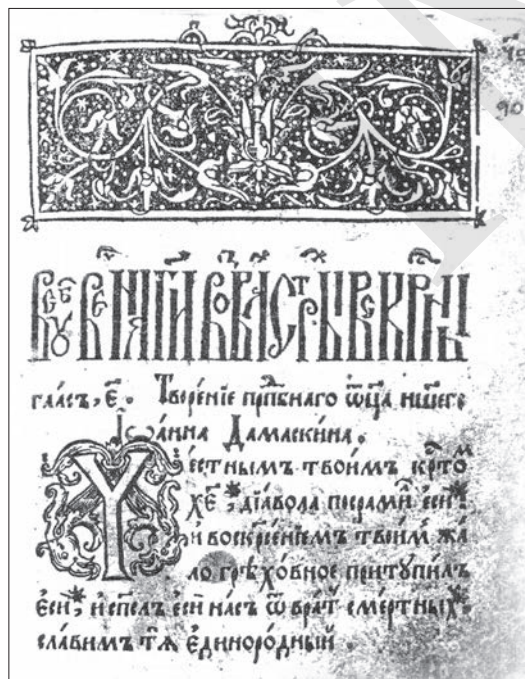 гла́съ, є҃. Творе́нїе прпⷣбнаго ѿц҃а нш҃его
Їѡа́нна Дамаскина.
Честнымъ твоимъ крⷭ҇тоⷨ
хе҃, дїа́вола посрами́ⷧ҇ єсѝ
и воскрⷭ҇е́нїемъ твои́мъ жа́
ло грѣхо́вное притꙋпи́лъ
є҆сѝ, и сп҃слъ є҆сѝ на́съ ѿ вра́тъ сме́ртныхъ
сла́вимъ тѧ̀ є҆диноро́дный